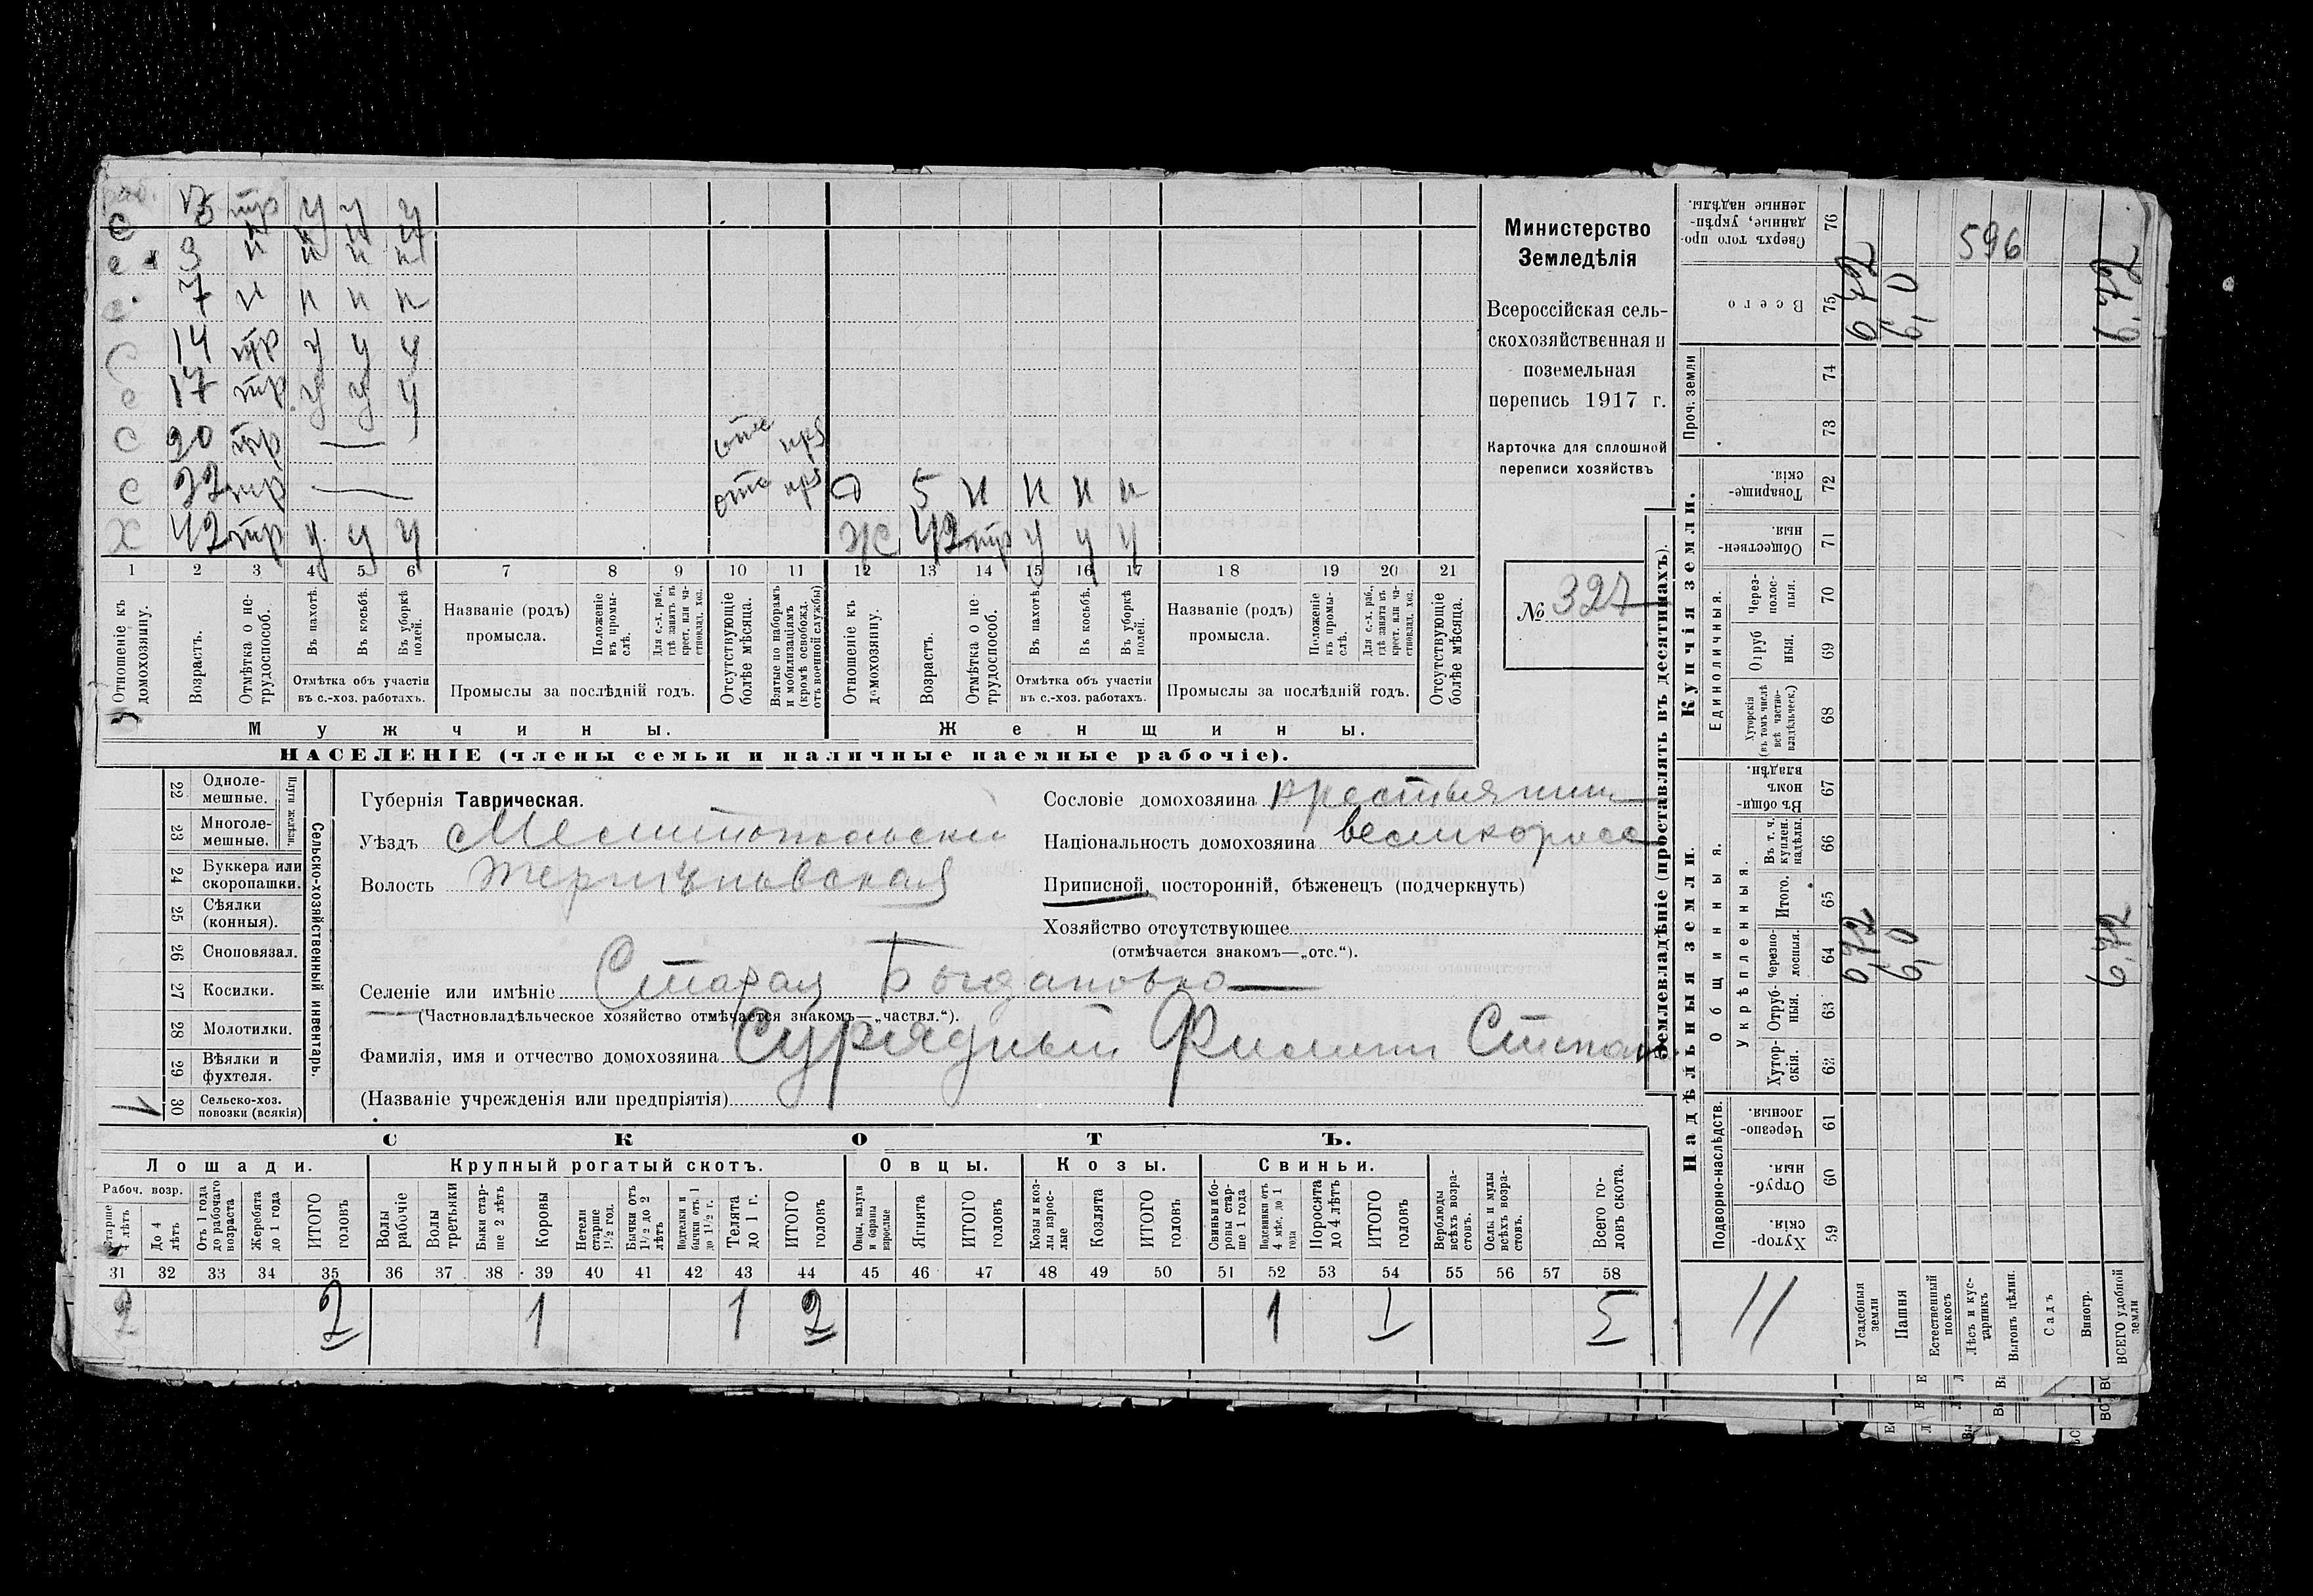 С 15 тр у у у
с 3 н н н н
с 7 н н н н
с 14 тр у у у
с 17 тр у у у
с 20 тр — отс
с 22 тр — отс О 5 н н н н
Х 42 тр у у у Ж 42 тр у у у
1 2 3 4 5 6 7 8 9 10 11 12 13 14 15 16 17 18 19 20 21
Отношеніе къ домохозяину.
Возрастъ.
Отмѣтка о нетрудоспособ.
Въ пахотѣ.
Въ косьбѣ.
Въ уборкѣ полей.
Отмѣтка объ участіи
въ с.-хоз. работахъ.
Названіе (родъ)
промысла.
Положеніе въ промыслѣ.
Для с.-х. раб., гдѣ занятъ въ крест. или частновлад. хоз.
Промыслы за послѣдній годъ.
Отсутствующіе болѣе мѣсяца.
Взятые по наборамъ и мобилизаціямъ (кромѣ освобожд. отъ военной службы)
Отношеніе къ домохозяину.
Возрастъ.
Отмѣтка о нетрудоспособ.
Въ пахотѣ.
Въ косьбѣ.
Въ уборкѣ полей.
Отмѣтка объ участіи
въ с.-хоз. работахъ.
Названіе (родъ)
промысла.
Положеніе въ промыслѣ.
Для с.-х. раб., гдѣ занята въ крест. или частновлад. хоз.
Промыслы за послѣдній годъ.
Отсутствующіе болѣе мѣсяца.
Мужчины.
Женщины.
НАСЕЛЕНІЕ (члены семьи и наличные наемные рабочіе).
Министерство
Земледѣлія
Всероссійская сель-
скохозяйственная и
поземельная
перепись 1917 г.
Карточка для сплошной
переписи хозяйствъ
№ 327
22 Одноле-
мешные.
23 Многоле-
мешные.
Плуги желѣзн.
24 Буккера или
скоропашки.
25 Сѣялки
(конныя).
26 Сноповязал.
27 Косилки.
28 Молотилки.
29 Вѣялки и
фухтеля.
30 Сельско-хоз.
повозки (всякія)
Сельско-хозяйственный инвентарь.
Губернія Таврическая.
Уѣздъ Мелитопольскій
Волость
Сословіе домохозяина крестьянин
Національность домохозяина великоросс
Приписной, посторонній, бѣженецъ (подчеркнуть)
Хозяйство отсутствующее
(отмѣчается знакомъ—„отс.“).
Селеніе или имѣніе Старая Богдановка
(Частновладѣльческое хозяйство отмѣчается знакомъ—„частвл.“).
Фамилія, имя и отчество домохозяина Филипп
(Названіе учрежденія или предпріятія)
СКОТЪ.
Лошади. Крупный рогатый скотъ. Овцы. Козы. Свиньи.
Рабоч. возр.
Старше 4 лѣтъ
До 4 лѣтъ
Отъ 1 года до рабочаго возраста
Жеребята до 1 года
ИТОГО головъ
Волы рабочіе
Волы третьяки
Быки старше 2 лѣтъ
Коровы
Нетели старше 1½ год.
Бычки отъ 1½ до 2 лѣтъ
Подтелки и бычки отъ 1 до 1½ г.
Телята до 1 г.
ИТОГО головъ
Овцы, валухи и бараны взрослые
Ягнята
ИТОГО головъ
Козы и козлы взрослые
Козлята
ИТОГО головъ
Свиньи и боровы старше 1 года
Подсвинки отъ 4 мѣс. до 1 года
Поросята до 4 лѣтъ
ИТОГО головъ
Верблюды всѣхъ возрастовъ.
Ослы и мулы всѣхъ возрастовъ.
Всего головъ скота.
31 32 33 34 35 36 37 38 39 40 41 42 43 44 45 46 47 48 49 50 51 52 53 54 55 56 57 58
2 2 1 1 2 1 1 5
Землевладѣніе (проставлять въ десятинахъ).
Купчія земли.
Надѣльныя земли.
Проч. земли
Единоличныя.
Общинныя.
Укрѣпленныя.
Подворно-наслѣдств.
Сверхъ того проданные, укрѣпленные надѣлы. 76
Всего 75
74
73
Товарищескія. 72
Общественныя. 71
Черезполосныя. 70
Отрубныя. 69
Хуторскія (въ томъ числѣ всѣ частновладѣльческ.) 68
Въ общинномъ владѣн. 67
Въ т. ч. куплен. надѣлы. 66
Итого. 65
Черезполосныя. 64
Отрубныя. 63
Хуторскія. 62
Черезполосныя. 61
Отрубныя. 60
Хуторскія. 59
596
6,0
6,72
6,0
6,72
11
Усадебныя земли
Пашня
Естественный покосъ
Лѣсъ и кустарникъ
Выгонъ цѣлин.
Садъ
Виногр.
ВСЕГО удобной земли